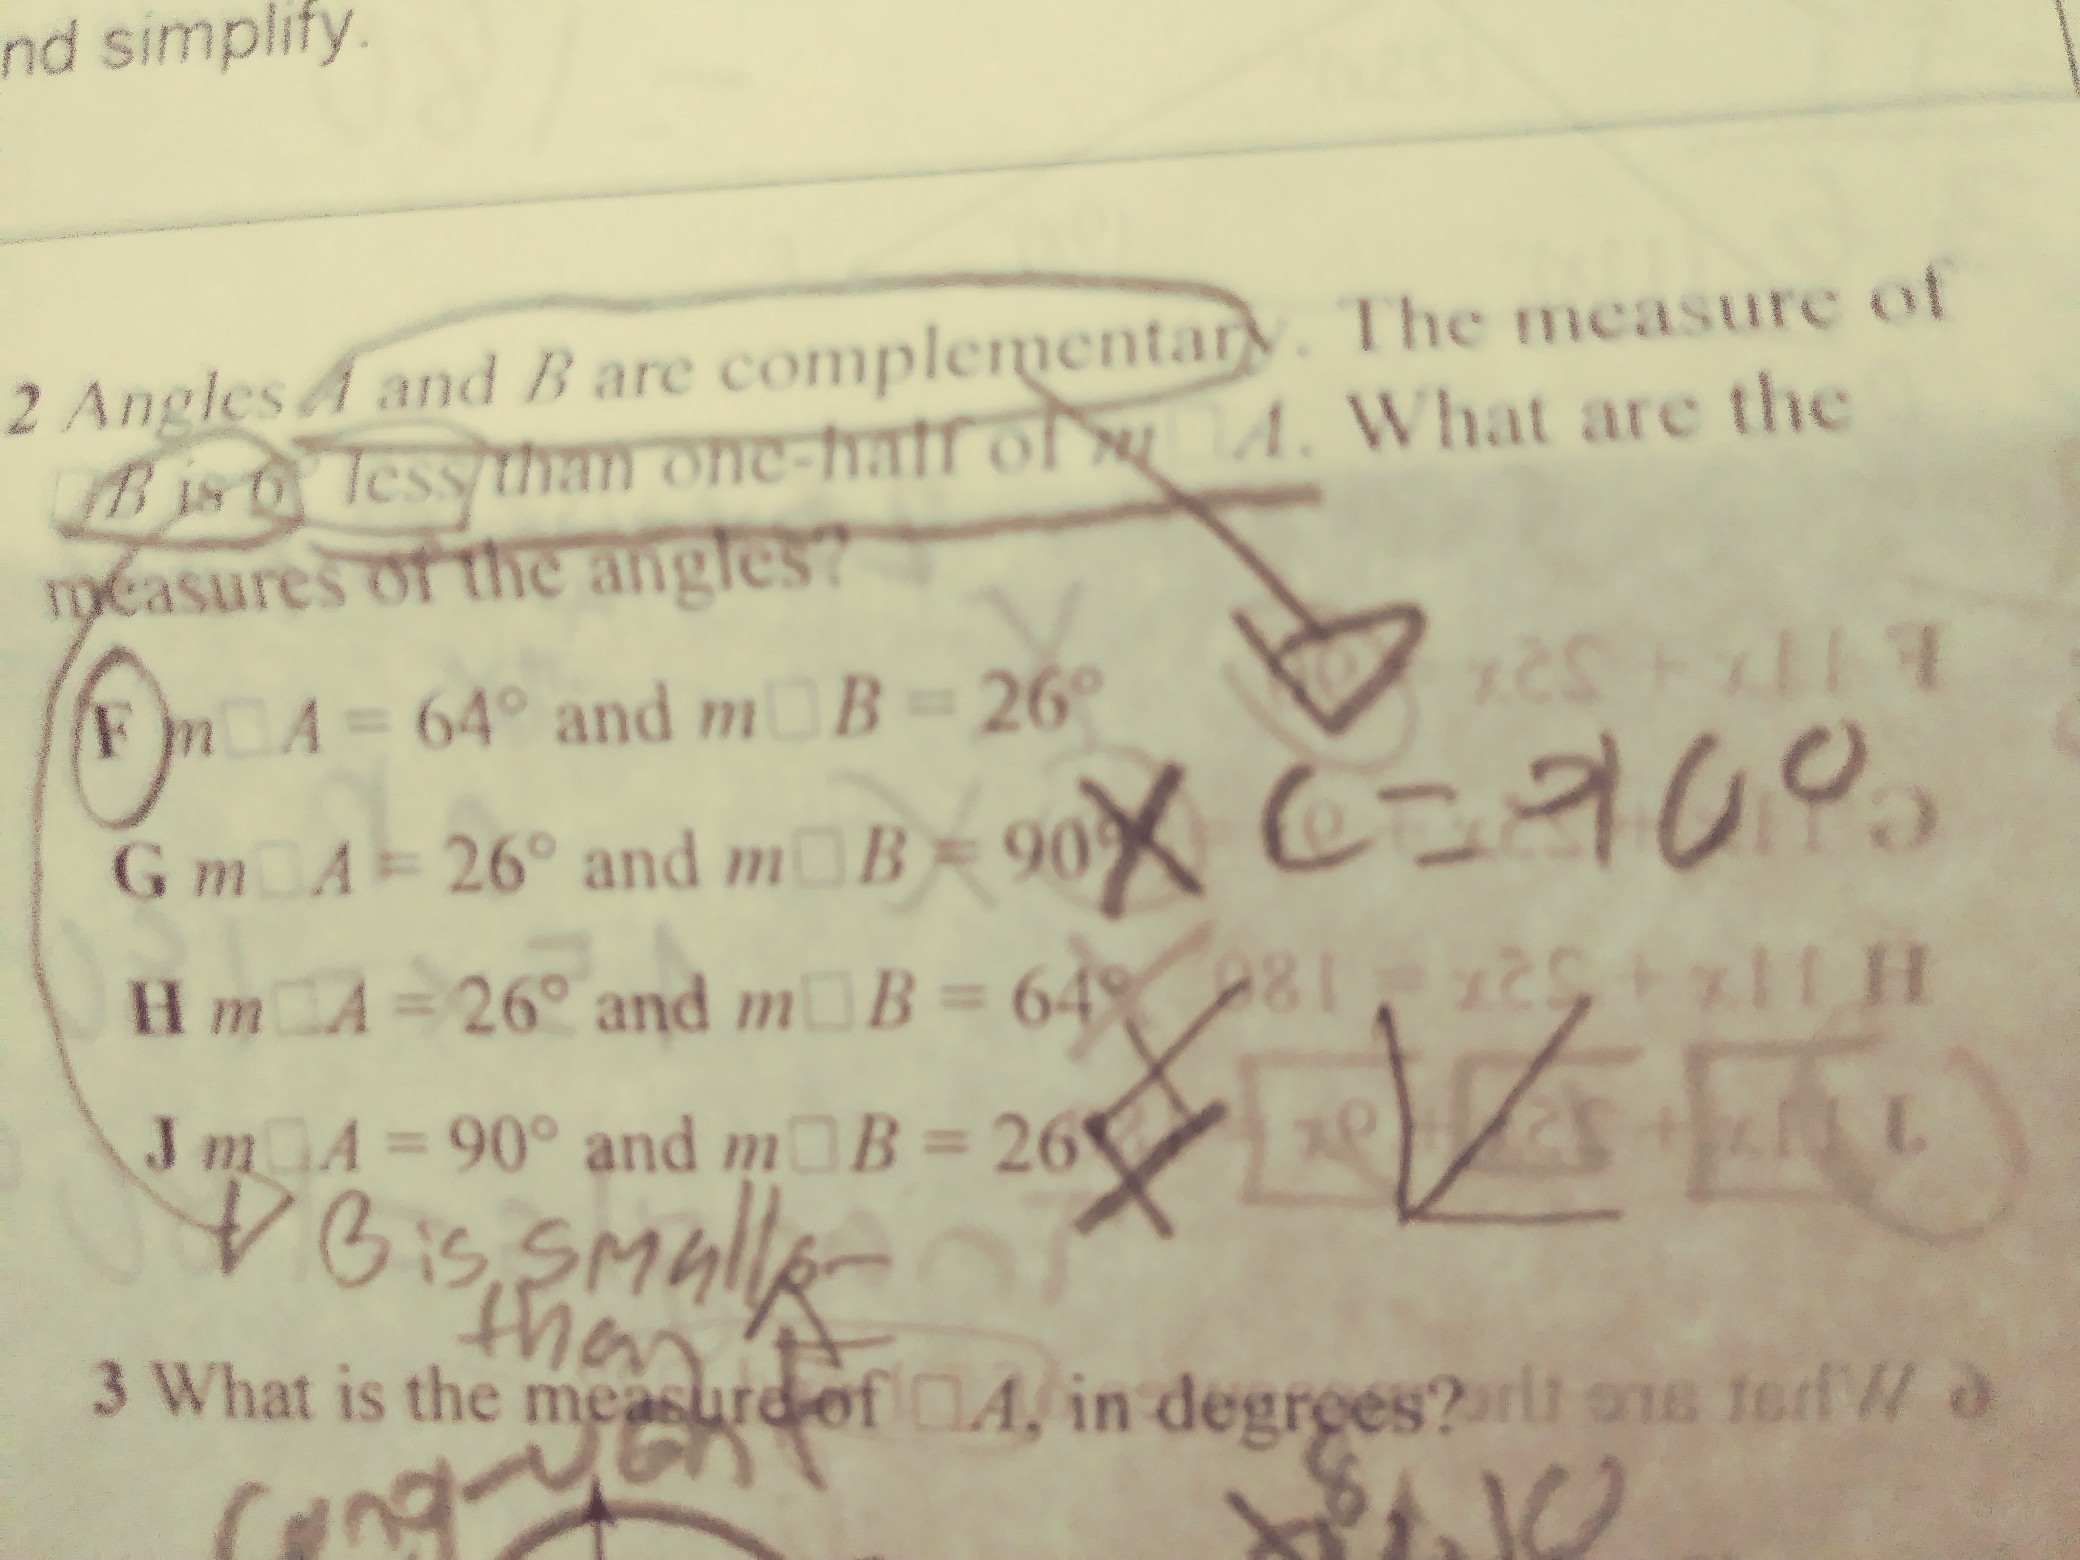 nd simplify.
2 Angles A and B are complementary. The measure of
□B is 6° less than one-half of m□A. What are the
measures of the angles?
F m□A = 64° and m□B = 26°
G m□A = 26° and m□B = 90°
H m□A = 26° and m□B = 64°
J m□A = 90° and m□B = 26°
B is smaller
than A
3 What is the measure of □A, in degrees?